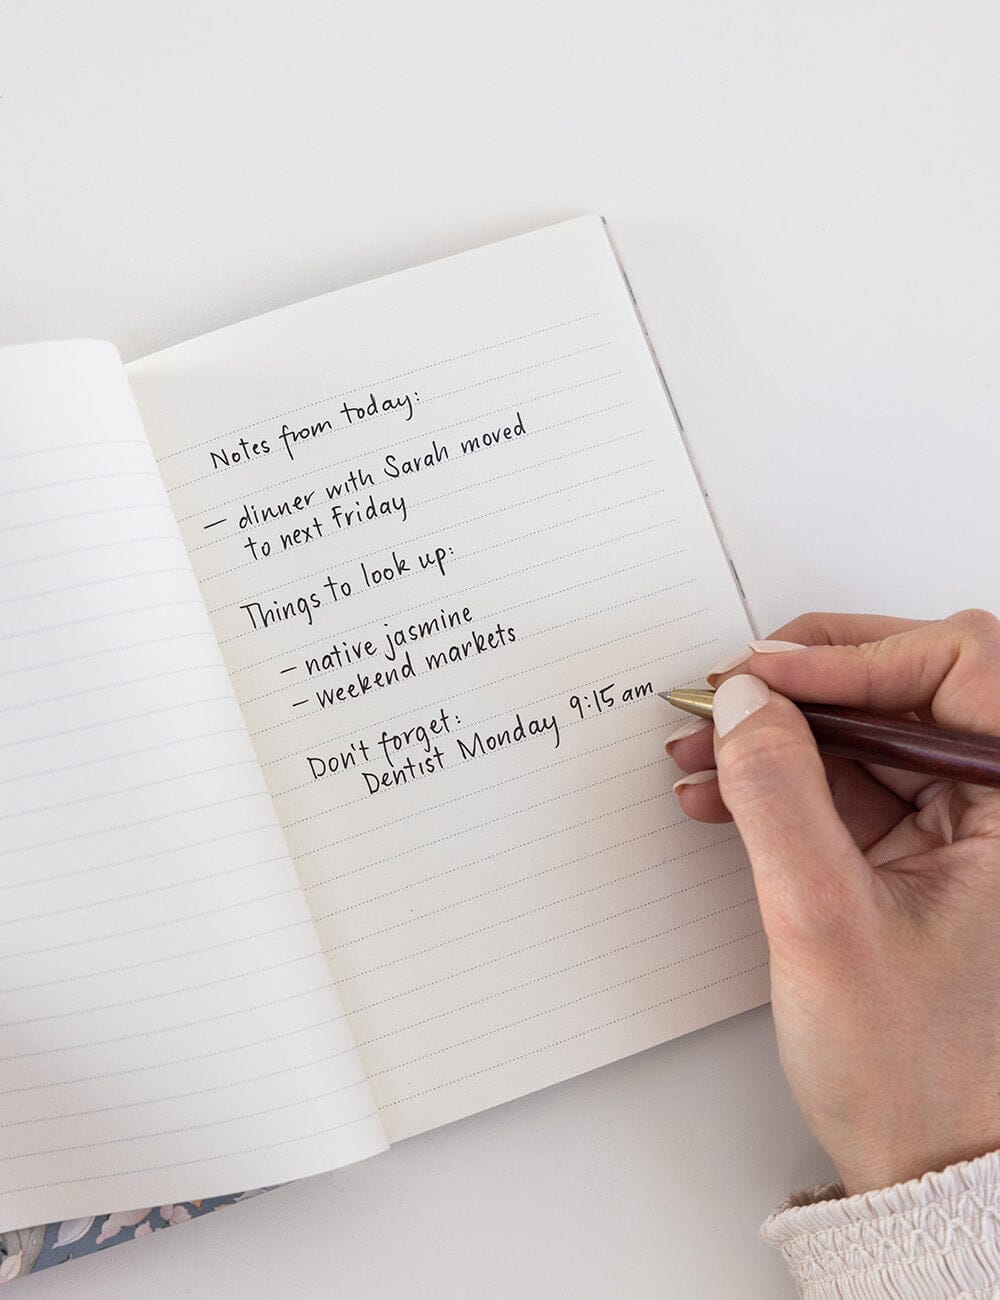 Notes from today:
— dinner with Sarah moved
to next Friday
Things to look up:
— native jasmine
— weekend markets
Don't forget:
Dentist Monday 9:15 am